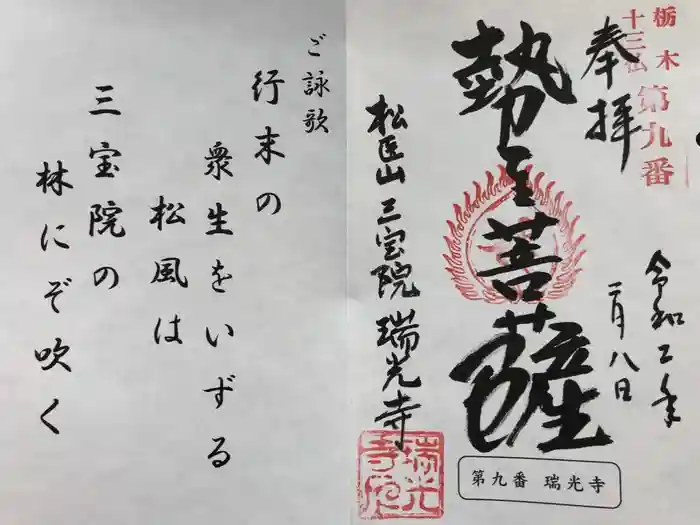 栃木
十三仏
第九番
奉拝
令和二年
二月八日
勢至菩薩
松医山 三宝院 瑞光寺
瑞光
寺印
第九番 瑞光寺
ご詠歌
行末の
衆生をいずる
松風は
三宝院の
林にぞ吹く